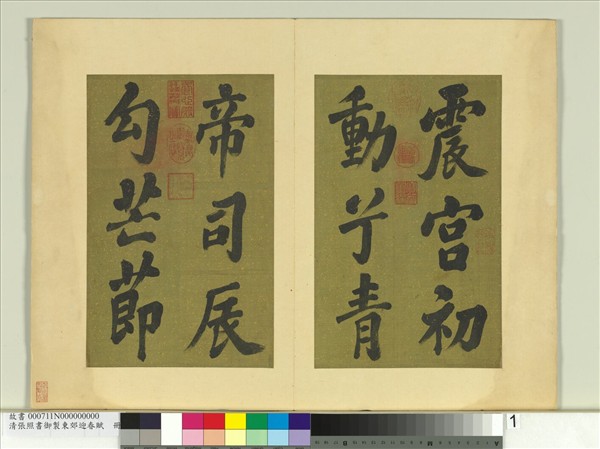 震宮初
動兮青
帝司辰
勾芒節
故書 000711N000000000
清張照書御製東郊迎春賦 冊
1